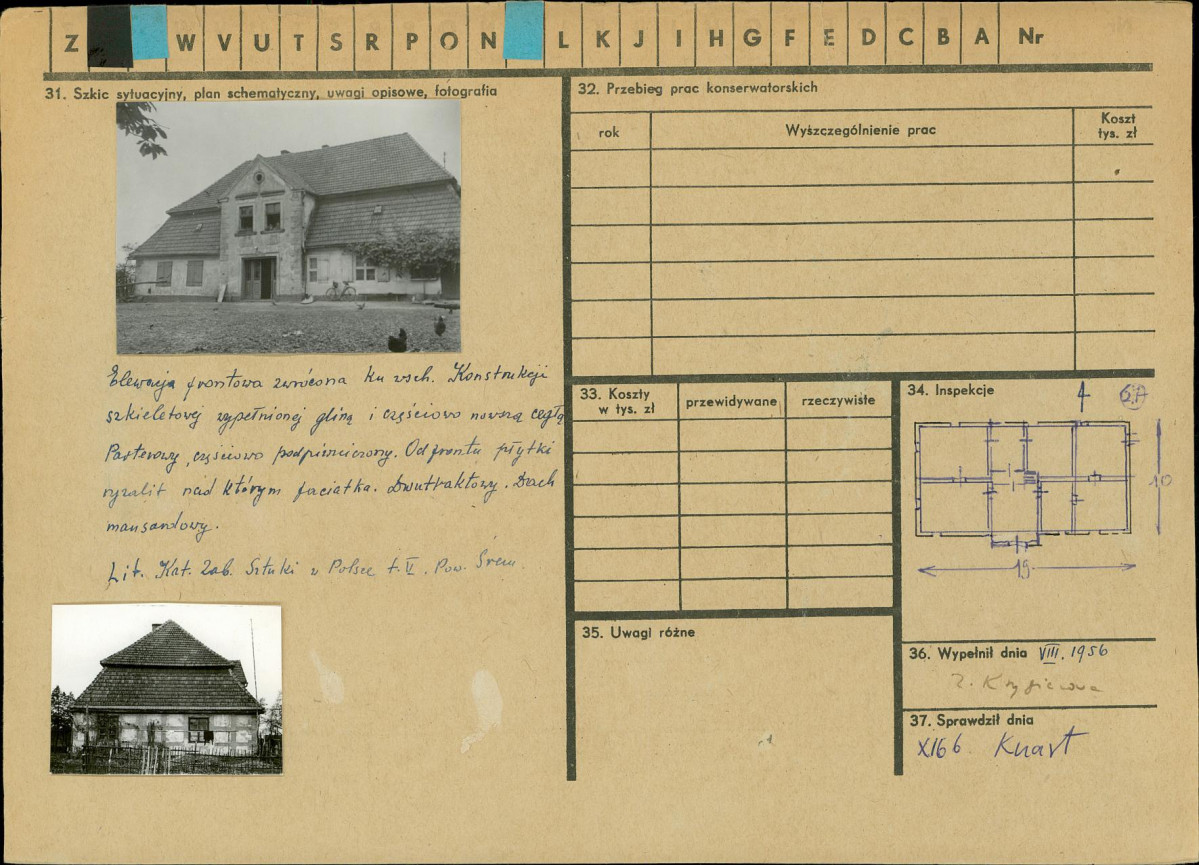 Z W V U T S R P O N L K J I H G F E D C B A Nr
31. Szkic sytuacyjny, plan schematyczny, uwagi opisowe, fotografia
Elewacja frontowa zwrócona ku wsch. Konstrukcji
szkieletowej wypełnionej gliną i częściowo nowszą cegłą
Parterowy, częściowo podpiwniczony. Od frontu płytki
ryzalit nad którym faciatka. Dwutraktowy. Dach
mansardowy.
Lit. Kat. Zab. Sztuki w Polsce t. V. Pow. Śrem.
32. Przebieg prac konserwatorskich
rok
Wyszczególnienie prac
Koszt
tys. zł
33. Koszty
w tys. zł
przewidywane
rzeczywiste
34. Inspekcje
10
15
35. Uwagi różne
36. Wypełnił dnia VIII. 1956
37. Sprawdził dnia
XI66 Knast